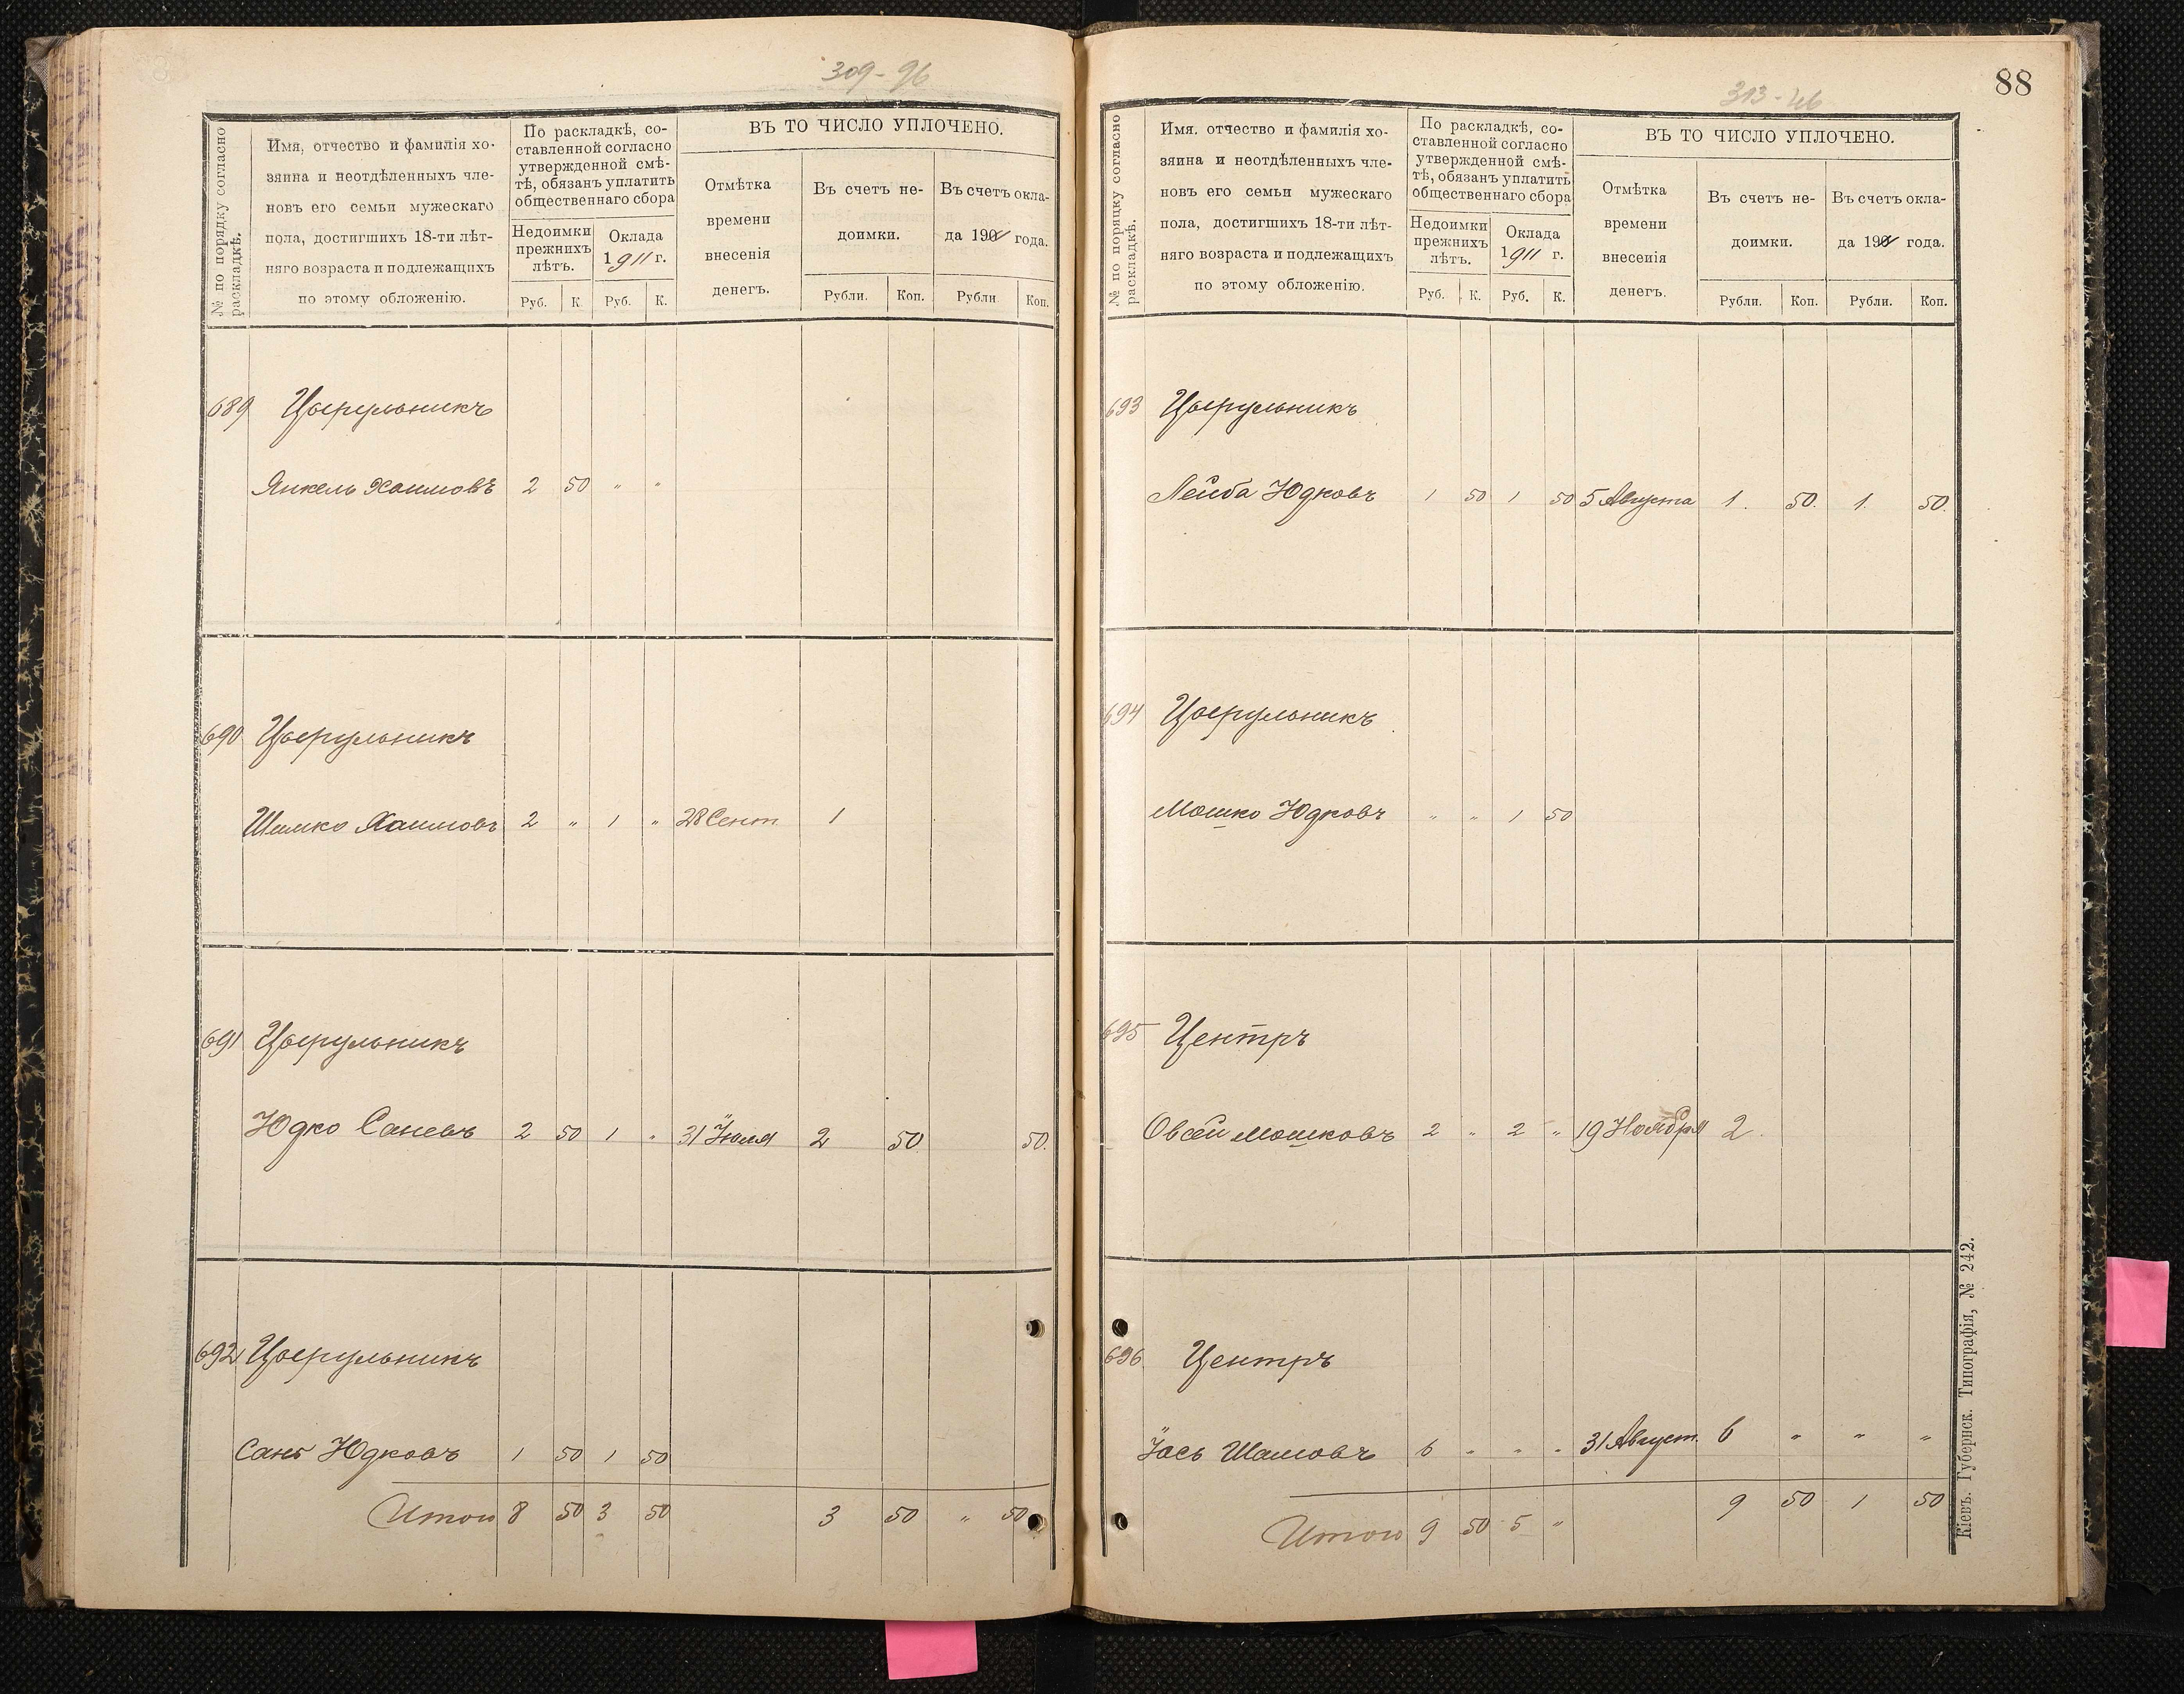 309-96
№ по порядку согласно раскладкѣ.
Имя, отчество и фамилія хо-
зяина и неотдѣленныхъ чле-
новъ его семьи мужескаго
пола, достигшихъ 18-ти лѣт-
няго возраста и подлежащихъ
по этому обложенію.
По раскладкѣ, со-
ставленной согласно
утвержденной смѣ-
тѣ, обязанъ уплатить
общественнаго сбора
Недоимки
прежнихъ
лѣтъ.
Оклада
1911 г.
Руб. К. Руб. К.
ВЪ ТО ЧИСЛО УПЛОЧЕНО.
Отмѣтка
времени
внесенія
денегъ.
Въ счетъ не-
доимки.
Въ счетъ окла-
да 190 года.
Рубли. Коп. Рубли Коп.
689 Цырульникъ
Янкель Хаимовъ 2 50 " "
690 Цырульникъ
Шимко Хаимовъ 2 " 1 " 28 Сент. 1
691 Цырульникъ
Юдко Саневъ 2 50 1 " 31 Іюля 2 50 50.
692 Цырульникъ
Саня Юдковъ 1 50 1 50
Итого 8 50 3 50 3 50 " 50
313-46
88
№ по порядку согласно раскладкѣ.
Имя. отчество и фамилія хо-
зяина и неотдѣленныхъ чле-
новъ его семьи мужескаго
пола, достигшихъ 18-ти лѣт-
няго возраста и подлежащихъ
по этому обложенію.
По раскладкѣ, со-
ставленной согласно
утвержденной смѣ-
тѣ, обязанъ уплатить
общественнаго сбора
Недоимки
прежнихъ
лѣтъ.
Оклада
1911 г.
Руб. К. Руб. К.
ВЪ ТО ЧИСЛО УПЛОЧЕНО.
Отмѣтка
времени
внесенія
денегъ.
Въ счетъ не-
доимки.
Въ счетъ окла-
да 190 года.
Рубли. Коп. Рубли. Коп.
693 Цырульникъ
Лейба Юдковъ 1 50 1 50 5 Августа 1. 50. 1. 50.
694 Цырульникъ
Мошко Юдковъ " " 1 50
695 Центръ
Овсей Мошковъ 2 " 2 " 19 Ноября 2.
696 Центръ
Іось Шаиовъ 6 " " " 31 Август. 6 " " "
Итого 9 50 5 " 9 50 1 50
Кіевъ. Губернск. Типографія, № 242.